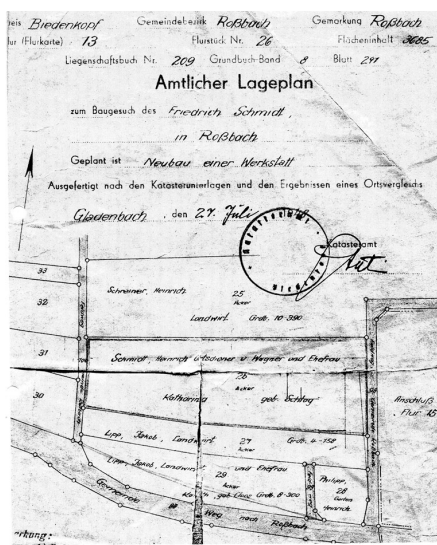 Kreis Biedenkopf Gemeindebezirk Roßbach Gemarkung Roßbach
Flur (Flurkarte) 13 Flurstück Nr. 26 Flächeninhalt 3685
Liegenschaftsbuch Nr. 209 Grundbuch-Band 8 Blatt 291
Amtlicher Lageplan
zum Baugesuch des Friedrich Schmidt,
in Roßbach
Geplant ist Neubau einer Werkstatt
Ausgefertigt nach den Katasterunterlagen und den Ergebnissen eines Ortsvergleichs
Gladenbach, den 27. Juli
Katasteramt
33
Schreiner, Heinrich 25
Acker
32
Landwirt Grdb. 10-390
31
Schmidt, Heinrich Wagner und Ehefrau
26
Acker
30
Katharina geb. Schlag
Anschluß
Flur 15
Lipp, Jakob, Landwirt 27 Grdb. 4-158
Acker
Lipp, Jakob, Landwirt und Ehefrau
29
Acker
Philipp,
28
Garten
Heinrich
geb. Grdb. 8-300
Weg nach Roßbach